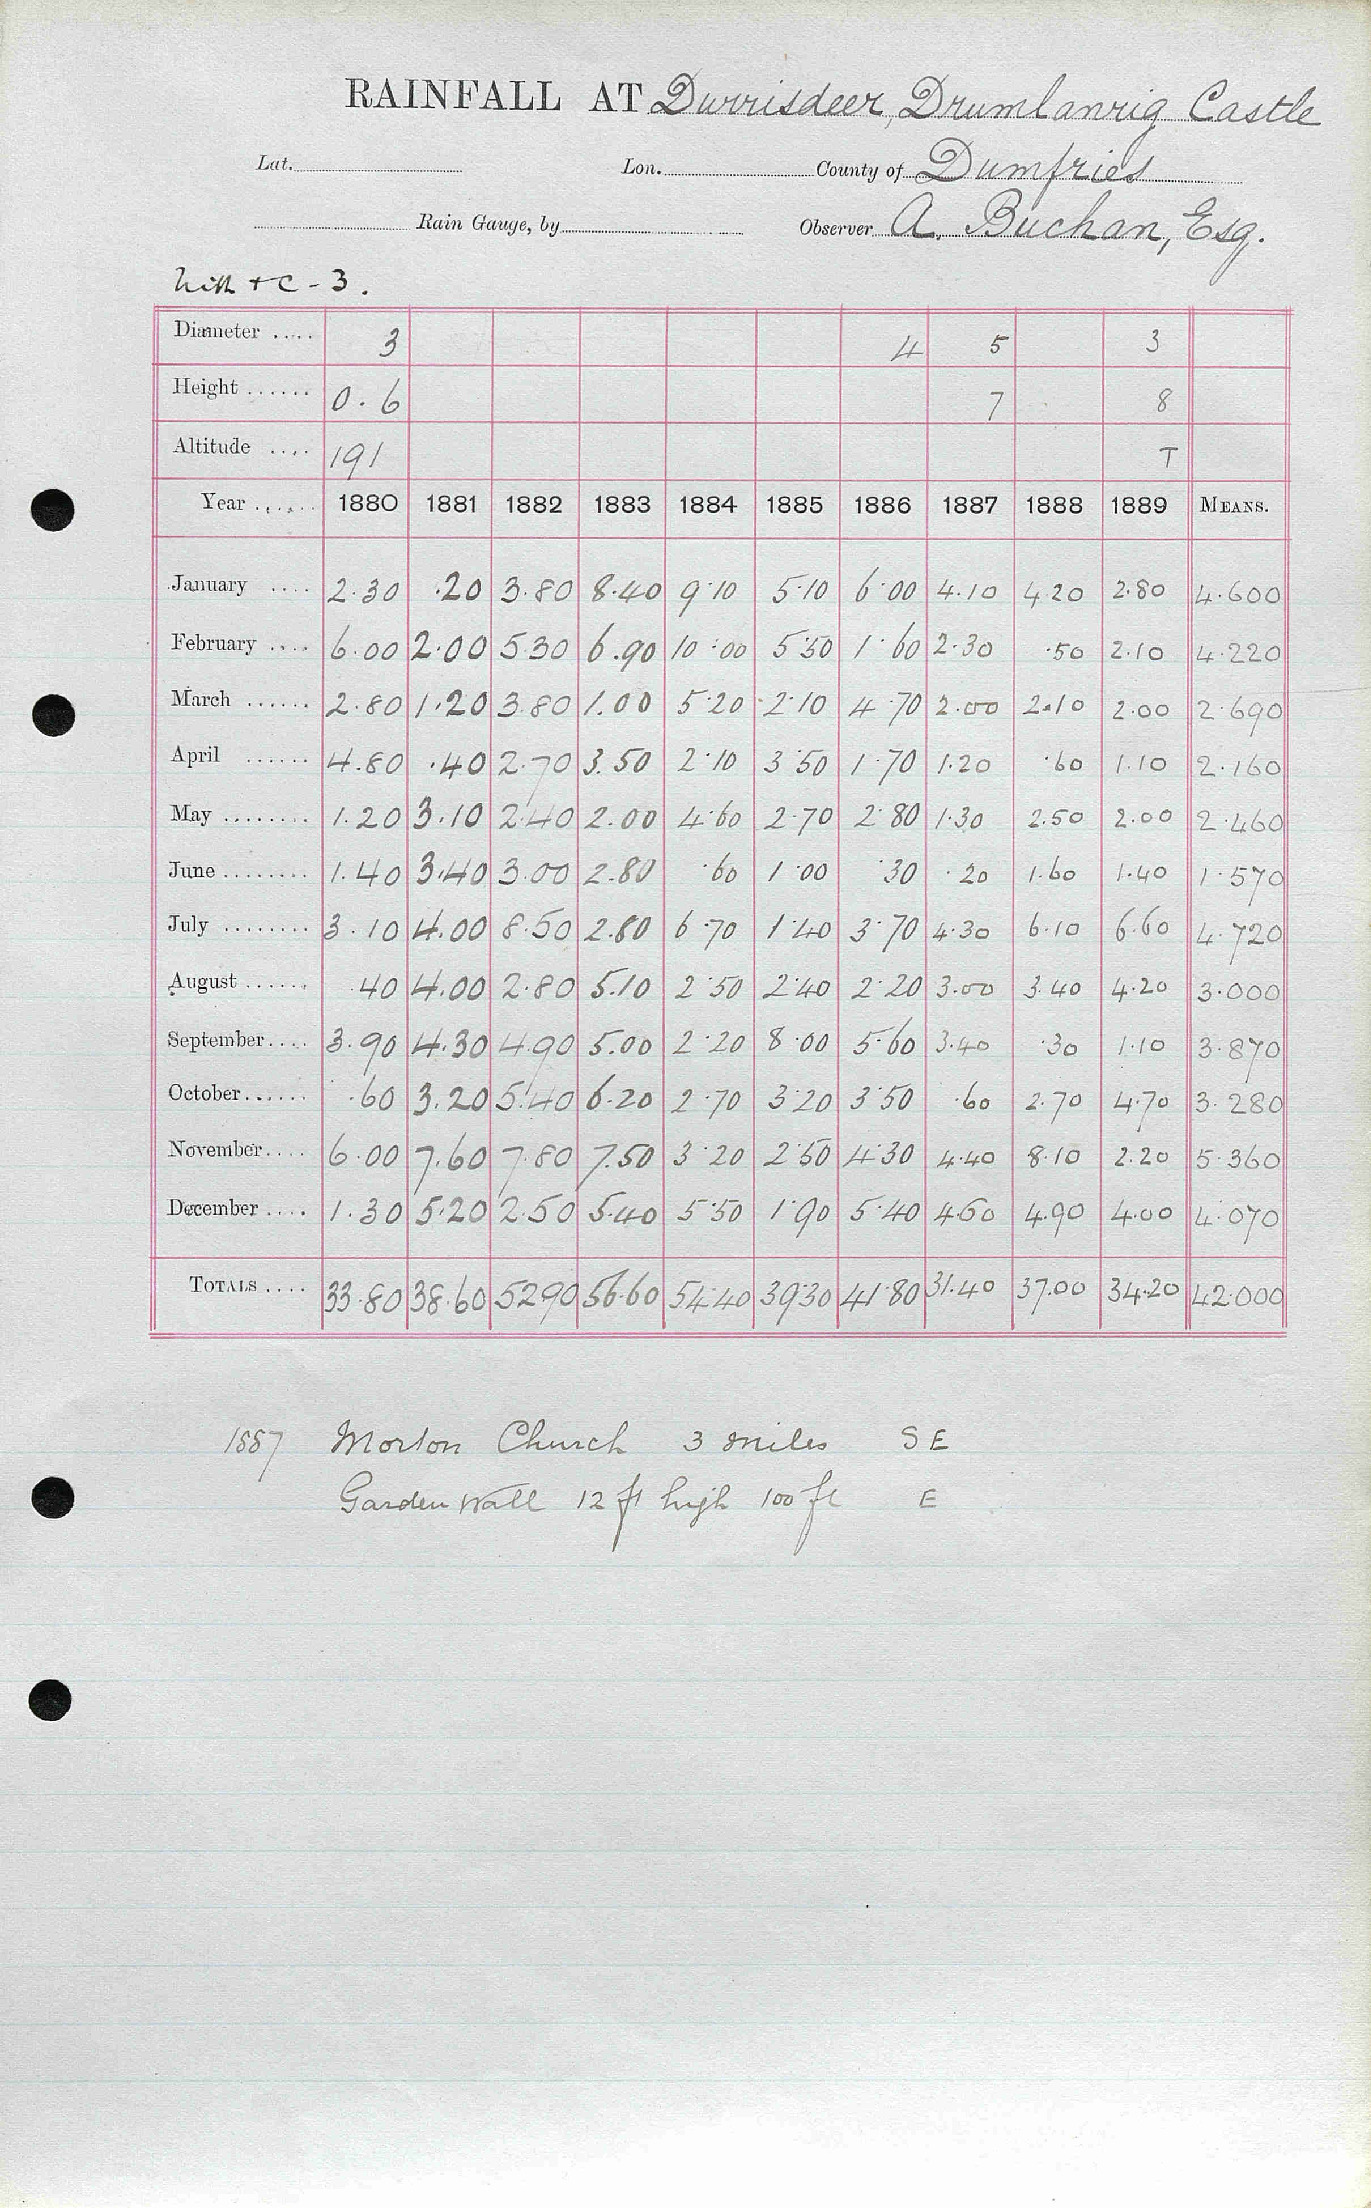 RAINFALL AT Durrisdeer, Drumlanrig Castle
Lat. Lon. County of Dumfries
Rain Gauge, by Observer A. Buchan, Esq.
Nith + C - 3.
Diameter ..... 3 4 5 3
Height ...... 0.6 7 8
Altitude .... 191 T
Year ...... 1880 1881 1882 1883 1884 1885 1886 1887 1888 1889 MEANS.
January .... 2.30 .20 3.80 8.40 9.10 5.10 6.00 4.10 4.20 2.80 4.600
February .... 6.00 2.00 5.30 6.90 10.00 5.50 1.60 2.30 .50 2.10 4.220
March ...... 2.80 1.20 3.80 1.00 5.20 2.10 4.70 2.00 2.10 2.00 2.690
April ...... 4.80 .40 2.70 3.50 2.10 3.50 1.70 1.20 .60 1.10 2.160
May ........ 1.20 3.10 2.40 2.00 4.60 2.70 2.80 1.30 2.50 2.00 2.460
June ........ 1.40 3.40 3.00 2.80 .60 1.00 .30 .20 1.60 1.40 1.570
July ........ 3.10 4.00 8.50 2.80 6.70 1.40 3.70 4.30 6.10 6.60 4.720
August ...... .40 4.00 2.80 5.10 2.50 2.40 2.20 3.00 3.40 4.20 3.000
September.... 3.90 4.30 4.90 5.00 2.20 8.00 5.60 3.40 .30 1.10 3.870
October...... .60 3.20 5.40 6.20 2.70 3.20 3.50 .60 2.70 4.70 3.280
November.... 6.00 7.60 7.80 7.50 3.20 2.50 4.30 4.40 8.10 2.20 5.360
December .... 1.30 5.20 2.50 5.40 5.50 1.90 5.40 4.60 4.90 4.00 4.070
TOTALS .... 33.80 38.60 52.90 56.60 54.40 39.30 41.80 31.40 37.00 34.20 42.000
1887 Morton Church 3 miles SE
Garden Wall 12 ft high 100 ft E